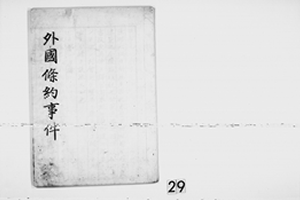 外國條約事件
29